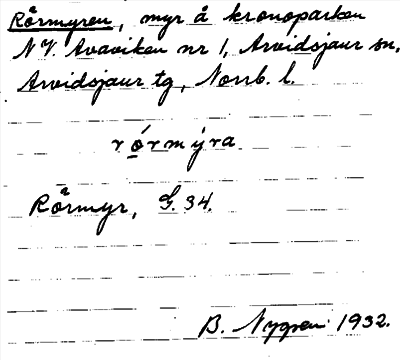 Rörmyren, myr å kronoparken
N.V. Avaviken nr 1, Arvidsjaur sn,
Arvidsjaur tg, Norrb. l.
rórmýra
Rörmyr, G. 34.
B. Nygren 1932.